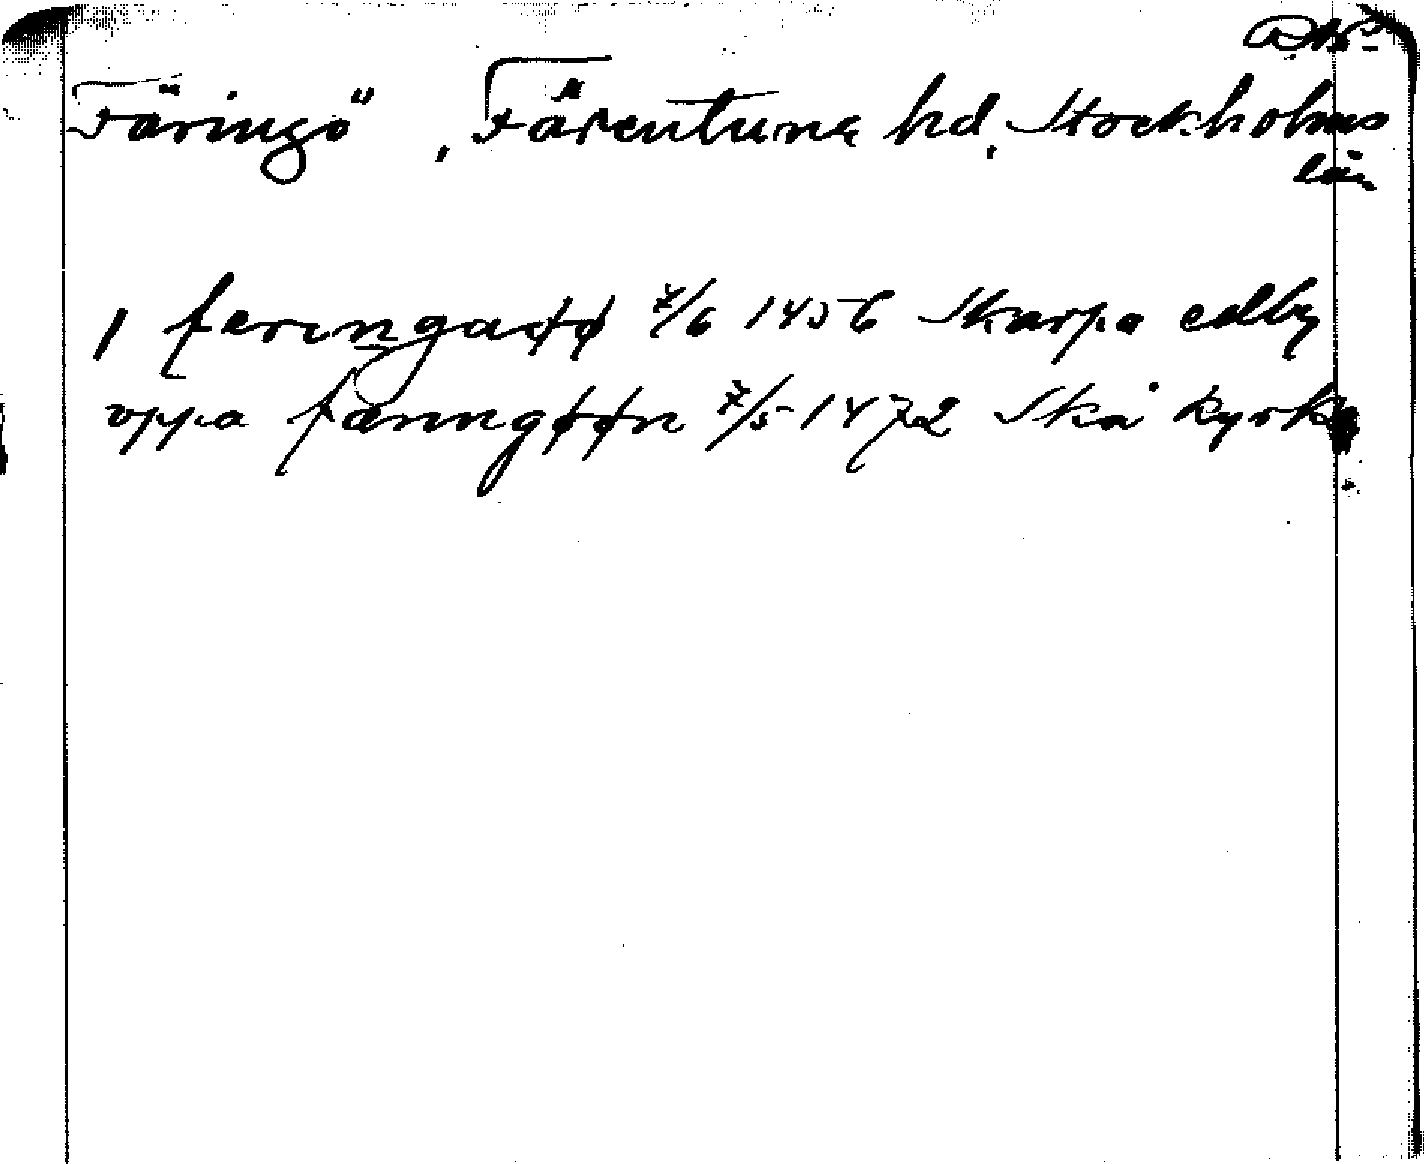 Färingö, Färentuna hd, Stockholms
län
j feringaøø 7/6 1456 Skarpa edby
vppa færingøøn 7/5 1472 Skå kyrka